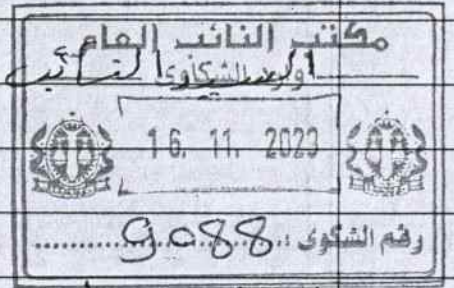 مكتب النائب العام
الشكاوى
16. 11. 2023
رقم الشكوى : 9088